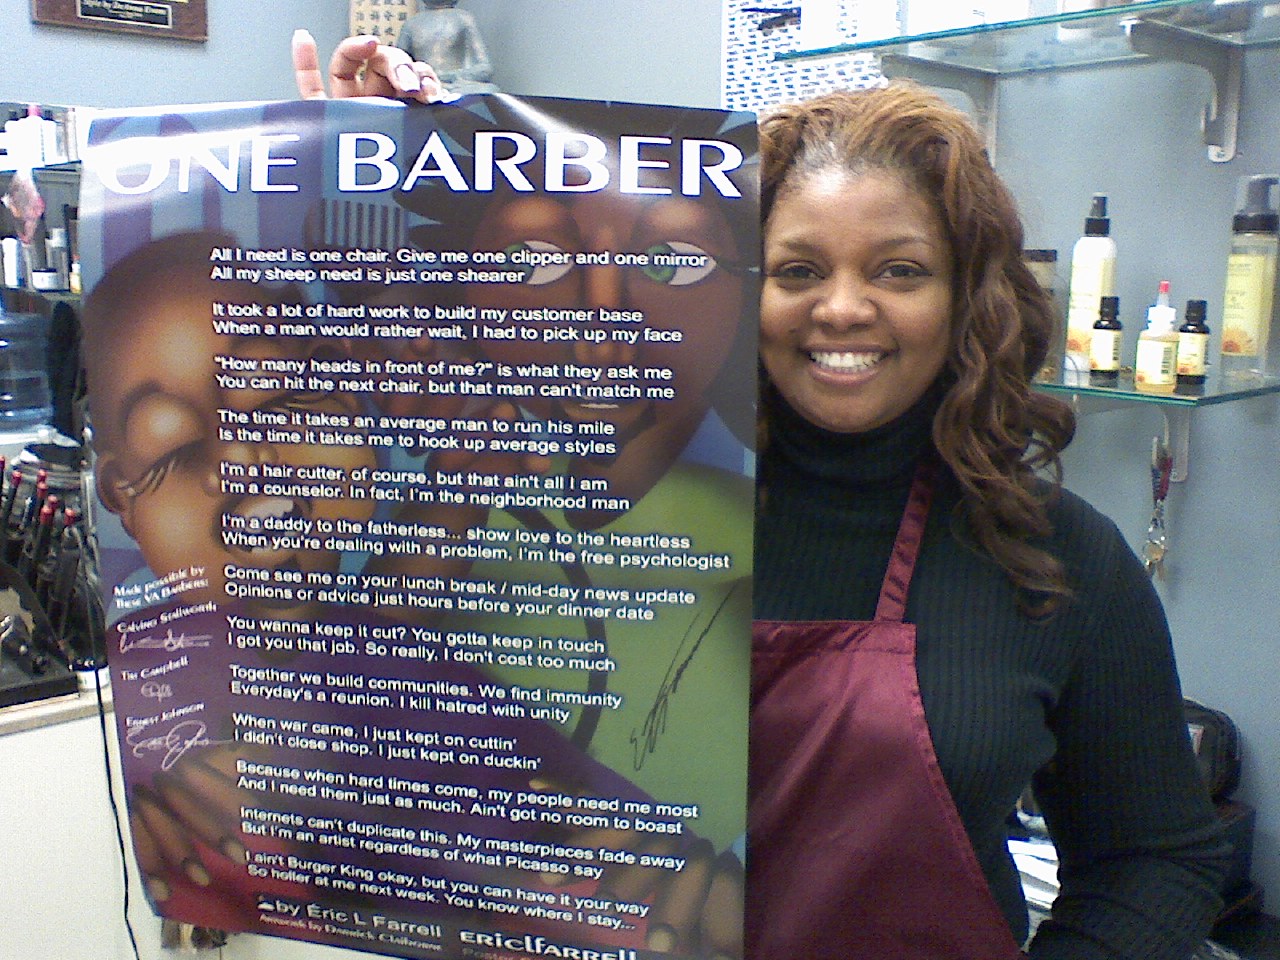 Style by DeAnna Evans
ONE BARBER
All I need is one chair. Give me one clipper and one mirror
All my sheep need is just one shearer
It took a lot of hard work to build my customer base
When a man would rather wait, I had to pick up my face
"How many heads in front of me?" is what they ask me
You can hit the next chair, but that man can't match me
The time it takes an average man to run his mile
Is the time it takes me to hook up average styles
I'm a hair cutter, of course, but that ain't all I am
I'm a counselor. In fact, I'm the neighborhood man
I'm a daddy to the fatherless... show love to the heartless
When you're dealing with a problem, I'm the free psychologist
Come see me on your lunch break / mid-day news update
Opinions or advice just hours before your dinner date
You wanna keep it cut? You gotta keep in touch
I got you that job. So really, I don't cost too much
Together we build communities. We find immunity
Everyday's a reunion. I kill hatred with unity
When war came, I just kept on cuttin'
I didn't close shop. I just kept on duckin'
Because when hard times come, my people need me most
And I need them just as much. Ain't got no room to boast
Internets can't duplicate this. My masterpieces fade away
But I'm an artist regardless of what Picasso say
I ain't Burger King okay, but you can have it your way
So holler at me next week. You know where I stay...
Made possible by
These VA Barbers:
Calvino Stallworth
Tim Campbell
Ernest Johnson
by Eric L Farrell
Artwork by Dannick Claiborne
ERIClFARRELL